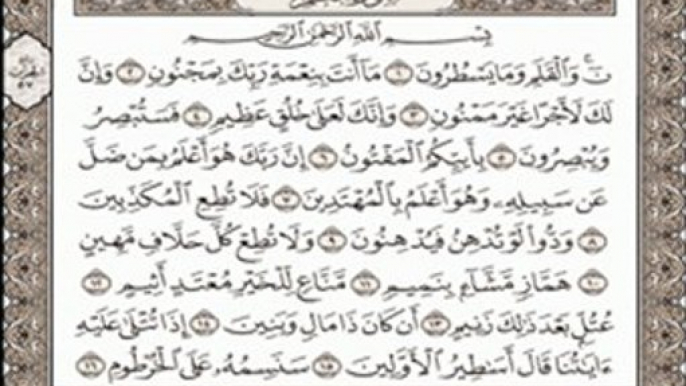 بِسْمِ اللَّهِ الرَّحْمَٰنِ الرَّحِيمِ
نٓ ۚ وَالْقَلَمِ وَمَا يَسْطُرُونَ ١ مَا أَنتَ بِنِعْمَةِ رَبِّكَ بِمَجْنُونٍ ٢ وَإِنَّ
لَكَ لَأَجْرًا غَيْرَ مَمْنُونٍ ٣ وَإِنَّكَ لَعَلَىٰ خُلُقٍ عَظِيمٍ ٤ فَسَتُبْصِرُ
وَيُبْصِرُونَ ٥ بِأَييِّكُمُ الْمَفْتُونُ ٦ إِنَّ رَبَّكَ هُوَ أَعْلَمُ بِمَن ضَلَّ
عَن سَبِيلِهِ وَهُوَ أَعْلَمُ بِالْمُهْتَدِينَ ٧ فَلَا تُطِعِ الْمُكَذِّبِينَ
٨ وَدُّوا لَوْ تُدْهِنُ فَيُدْهِنُونَ ٩ وَلَا تُطِعْ كُلَّ حَلَّافٍ مَّهِينٍ
١٠ هَمَّازٍ مَّشَّاءٍ بِنَمِيمٍ ١١ مَّنَّاعٍ لِّلْخَيْرِ مُعْتَدٍ أَثِيمٍ ١٢
عُتُلٍّ بَعْدَ ذَٰلِكَ زَنِيمٍ ١٣ أَن كَانَ ذَا مَالٍ وَبَنِينَ ١٤ إِذَا تُتْلَىٰ عَلَيْهِ
ءَايَٰتُنَا قَالَ أَسَٰطِيرُ الْأَوَّلِينَ ١٥ سَنَسِمُهُ عَلَى الْخُرْطُومِ ١٦